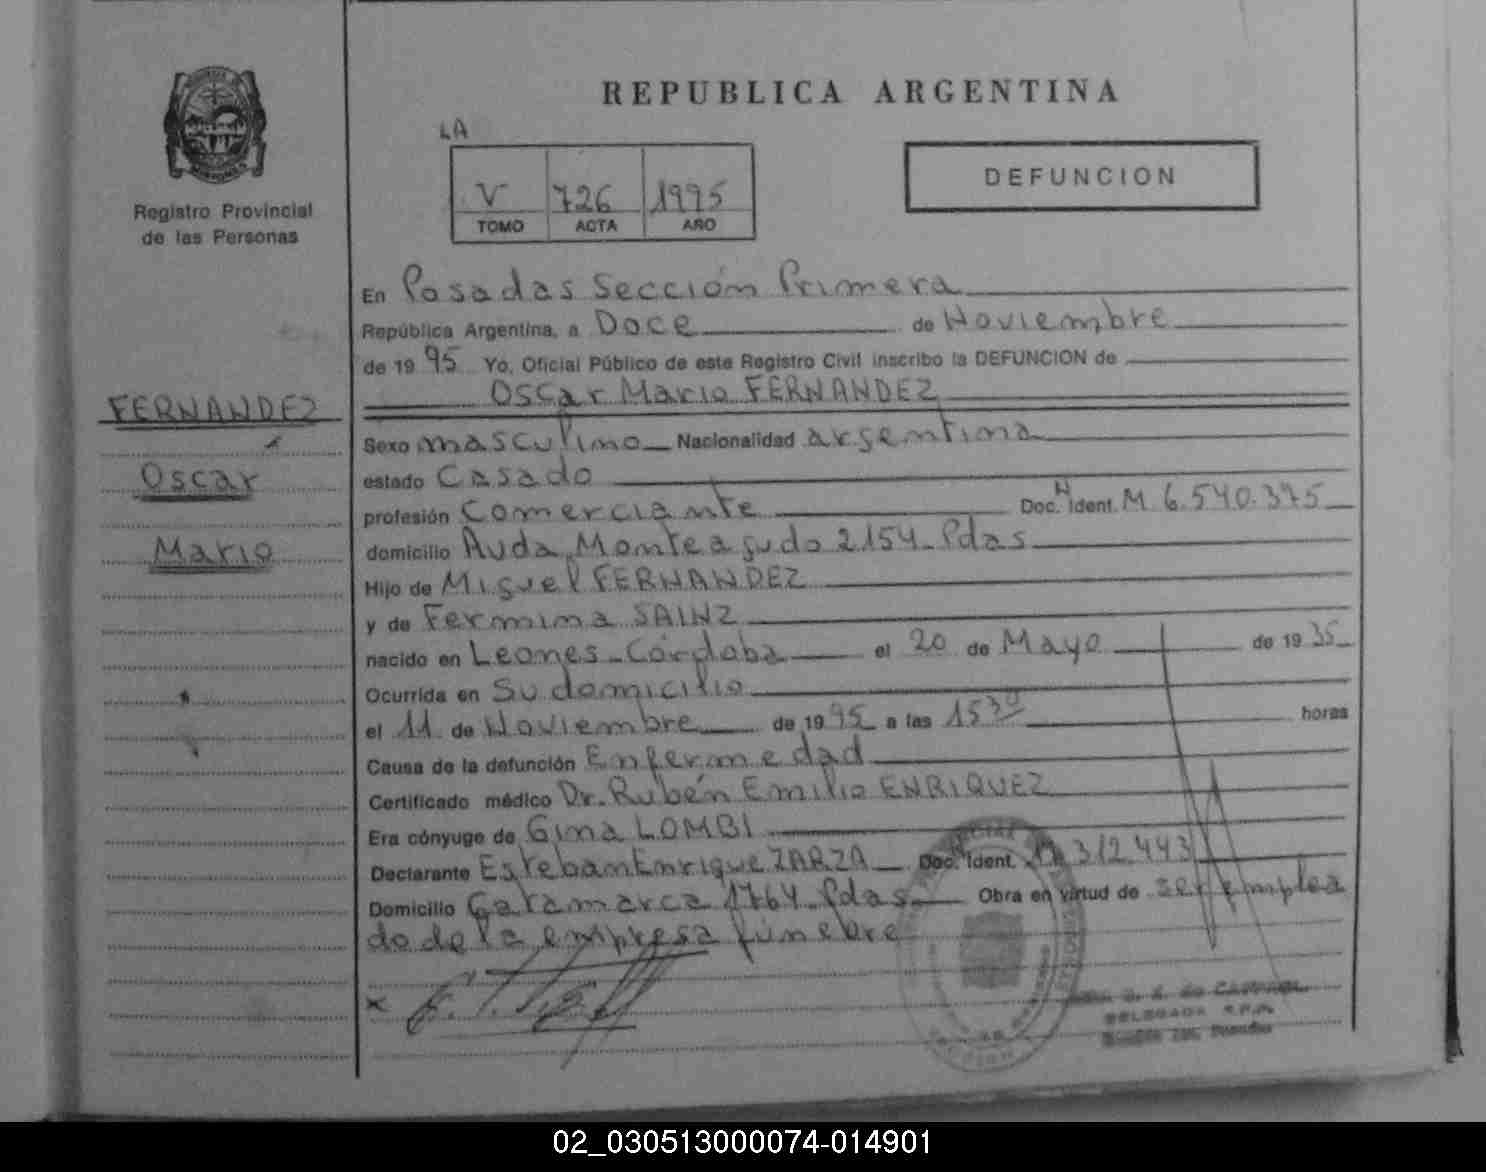 REPUBLICA ARGENTINA
LA
V 726 1995
TOMO ACTA AÑO
DEFUNCION
Registro Provincial
de las Personas
FERNANDEZ
Oscar
Mario
En Posadas Sección Primera
República Argentina, a Doce de Noviembre
de 1995 Yo, Oficial Público de este Registro Civil inscribo la DEFUNCION de
Oscar Mario FERNANDEZ
Sexo masculino Nacionalidad argentina
estado Casado
profesión Comerciante Doc. N Ident. M. 6.540.375
domicilio Avda. Monteagudo 2154-Pdas
Hijo de Miguel FERNANDEZ
y de Fermina SAINZ
nacido en Leones-Córdoba el 20 de Mayo de 1935
Ocurrida en Su domicilio
el 11 de Noviembre de 1995 a las 15³⁰ horas
Causa de la defunción Enfermedad
Certificado médico Dr. Rubén Emilio ENRIQUEZ
Era cónyuge de Gina LOMBI
Declarante Esteban Enrique ZARZA Doc. N Ident.
Domicilio Catamarca 1764-Pdas Obra en virtud de ser emplea
do de la empresa fúnebre
x
DELEGADA R.P.P.
02_030513000074-014901